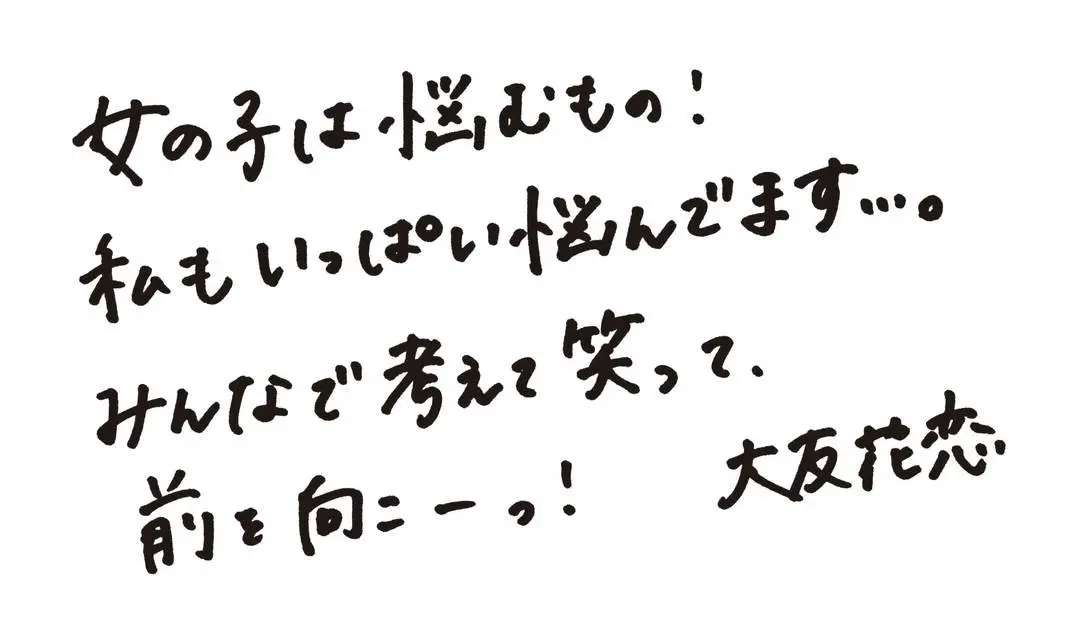 女の子は悩むもの!
私もいっぱい悩んでます…。
みんなで考えて笑って、
前を向こーっ!
大友花恋